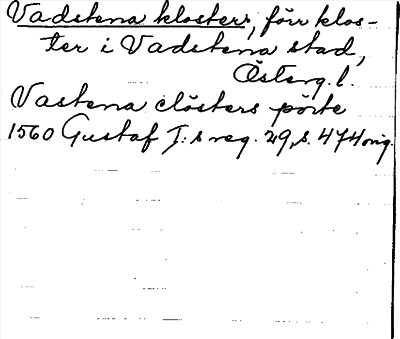 Vadstena kloster, förr klos-
ter i Vadstena stad,
Österg. l.
Vastena clösters pörte
1560 Gustaf I:s reg. 29, s. 474 orig.